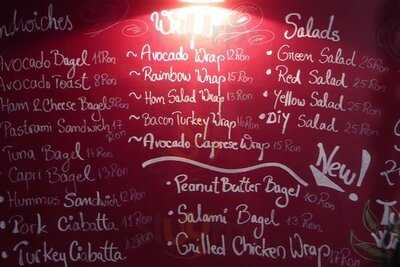 ndwiches
Avocado Bagel 11 Ron
Avocado Toast 8 Ron
Ham & Cheese Bagel 9 Ron
Pastrami Sandwich 17 Ron
Tuna Bagel 11 Ron
Capri Bagel 13 Ron
Hummus Sandwich 12 Ron
Pork Ciabatta
Turkey Ciabatta
W
~Avocado Wrap 12 Ron
~Rainbow Wrap 15 Ron
~Ham Salad Wrap 13 Ron
~Bacon Turkey Wrap
~Avocado Caprese Wrap 15 Ron
Salads
• Green Salad 25 Ron
• Red Salad 25 Ron
• Yellow Salad 25 Ron
• DIY Salad 25 Ron
New!
• Peanut Butter Bagel 10 Ron
• Salami Bagel 13 Ron
• Grilled Chicken Wrap